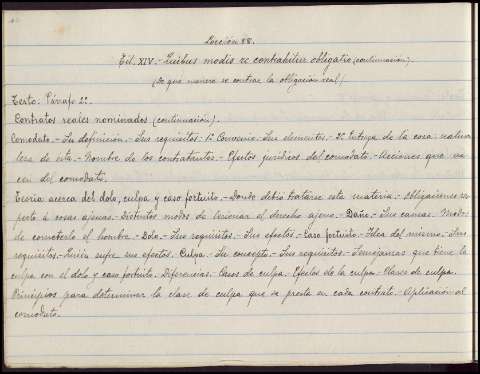 Lección 88.
Tít. XIV.- Quibus modis re contrahitur obligatio (continuación).
(De qué manera se contrae la obligación real)
Texto: Párrafo 2º.
Contratos reales nominados (continuación).
Comodato.- Su definición.- Sus requisitos.- 1º Convenio.- Sus elementos.- 2º Entrega de la cosa: natura-
leza de esta.- Nombre de los contratantes.- Efectos jurídicos del comodato.- Acciones que na-
cen del comodato.
Teoría acerca del dolo, culpa y caso fortuito.- Donde debió tratarse esta materia.- Obligaciones res-
pecto á cosas ajenas.- Distintos modos de lesionar el derecho ajeno.- Daño.- Sus causas.- Modos
de cometerlo el hombre.- Dolo.- Sus requisitos.- Sus efectos.- Caso fortuito.- Idea del mismo.- Sus
requisitos.- Quién sufre sus efectos.- Culpa.- Su concepto.- Sus requisitos.- Semejanzas que tiene la
culpa con el dolo y caso fortuito.- Diferencias.- Casos de culpa.- Efectos de la culpa.- Clases de culpa.
Principios para determinar la clase de culpa que se presta en cada contrato.- Aplicación al
comodato.